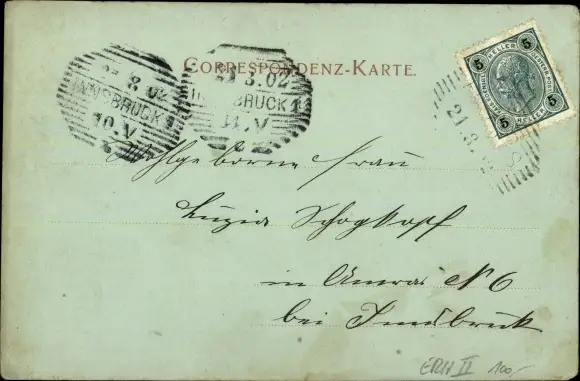 CORRESPONDENZ-KARTE.
21 8.02
INNSBRUCK 1
10.V
21 8.02
INNSBRUCK 1
11.V
5 HELLER 5
5 HELLER 5
21.8.
Wohlgeborne Frau
Luzia Schogkopf
in Amras N° 6
bei Innsbruck
100,-